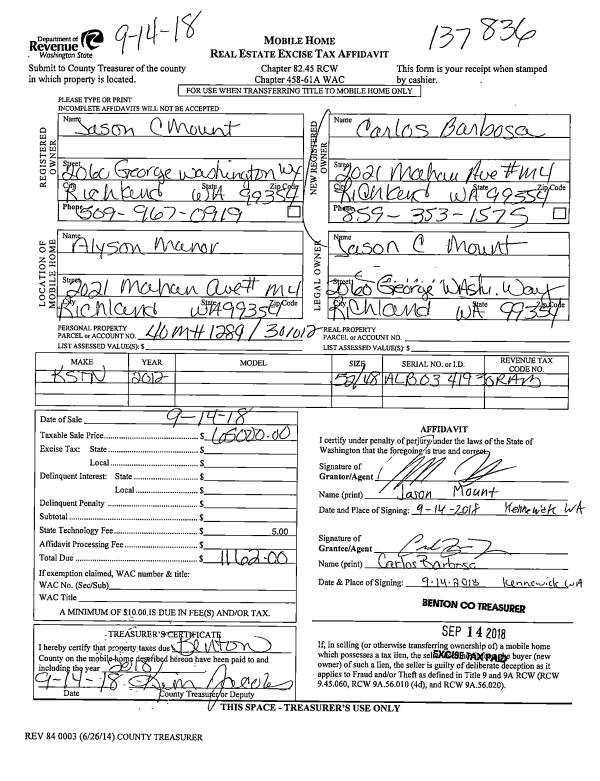 Department of
Revenue
Washington State
9-14-18
MOBILE HOME
REAL ESTATE EXCISE TAX AFFIDAVIT
137836
Submit to County Treasurer of the county
in which property is located.
Chapter 82.45 RCW
Chapter 458-61A WAC
This form is your receipt when stamped
by cashier.
FOR USE WHEN TRANSFERRING TITLE TO MOBILE HOME ONLY
PLEASE TYPE OR PRINT
INCOMPLETE AFFIDAVITS WILL NOT BE ACCEPTED
REGISTERED
OWNER
Name Jason C Mount
Street 2060 George Washington Wy
City Richland State WA Zip Code 99354
Phone 509-967-0919
NEW REGISTERED
OWNER
Name Carlos Barbosa
Street 2021 Mahan Ave # M4
City Richland State WA Zip Code 99354
Phone 859-353-1575
LOCATION OF
MOBILE HOME
Name Alyson Manor
Street 2021 Mahan Ave # M4
City Richland State WA Zip Code 99354
LEGAL OWNER
Name Jason C Mount
Street 2060 George Wash. Way
City Richland State WA Zip Code 99354
PERSONAL PROPERTY
PARCEL or ACCOUNT NO. 40MH 1289 / 301012
LIST ASSESSED VALUE(S): $
REAL PROPERTY
PARCEL or ACCOUNT NO.
LIST ASSESSED VALUE(S): $
MAKE YEAR MODEL SIZE SERIAL NO. or I.D. REVENUE TAX CODE NO.
KSTN 2012 52/48 ALB03 4193ORAB
Date of Sale 9-14-18
Taxable Sale Price $ 65000.00
Excise Tax: State $
Local $
Delinquent Interest: State $
Local $
Delinquent Penalty $
Subtotal $
State Technology Fee $ 5.00
Affidavit Processing Fee $
Total Due $ 1162.00
If exemption claimed, WAC number & title:
WAC No. (Sec/Sub)
WAC Title
A MINIMUM OF $10.00 IS DUE IN FEE(S) AND/OR TAX.
AFFIDAVIT
I certify under penalty of perjury under the laws of the State of
Washington that the foregoing is true and correct.
Signature of
Grantor/Agent
Name (print) Jason Mount
Date and Place of Signing: 9-14-2018 Kennewick WA
Signature of
Grantee/Agent
Name (print) Carlos Barbosa
Date & Place of Signing: 9-14-2018 Kennewick WA
BENTON CO TREASURER
SEP 14 2018
EXCISE TAX PAID
TREASURER'S CERTIFICATE
I hereby certify that property taxes due Benton
County on the mobile home described hereon have been paid to and
including the year 2018
9-14-18
Date County Treasurer or Deputy
If, in selling (or otherwise transferring ownership of) a mobile home
which possesses a tax lien, the seller the buyer (new
owner) of such a lien, the seller is guilty of deliberate deception as it
applies to Fraud and/or Theft as defined in Title 9 and 9A RCW (RCW
9.45.060, RCW 9A.56.010 (4d), and RCW 9A.56.020).
THIS SPACE - TREASURER'S USE ONLY
REV 84 0003 (6/26/14) COUNTY TREASURER